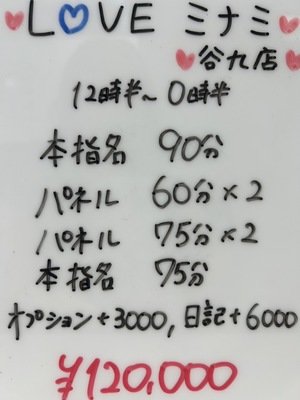 LOVE ミナミ
谷九店
12時半~0時半
本指名 90分
パネル 60分×2
パネル 75分×2
本指名 75分
オプション+3000, 日記+6000
¥120,000